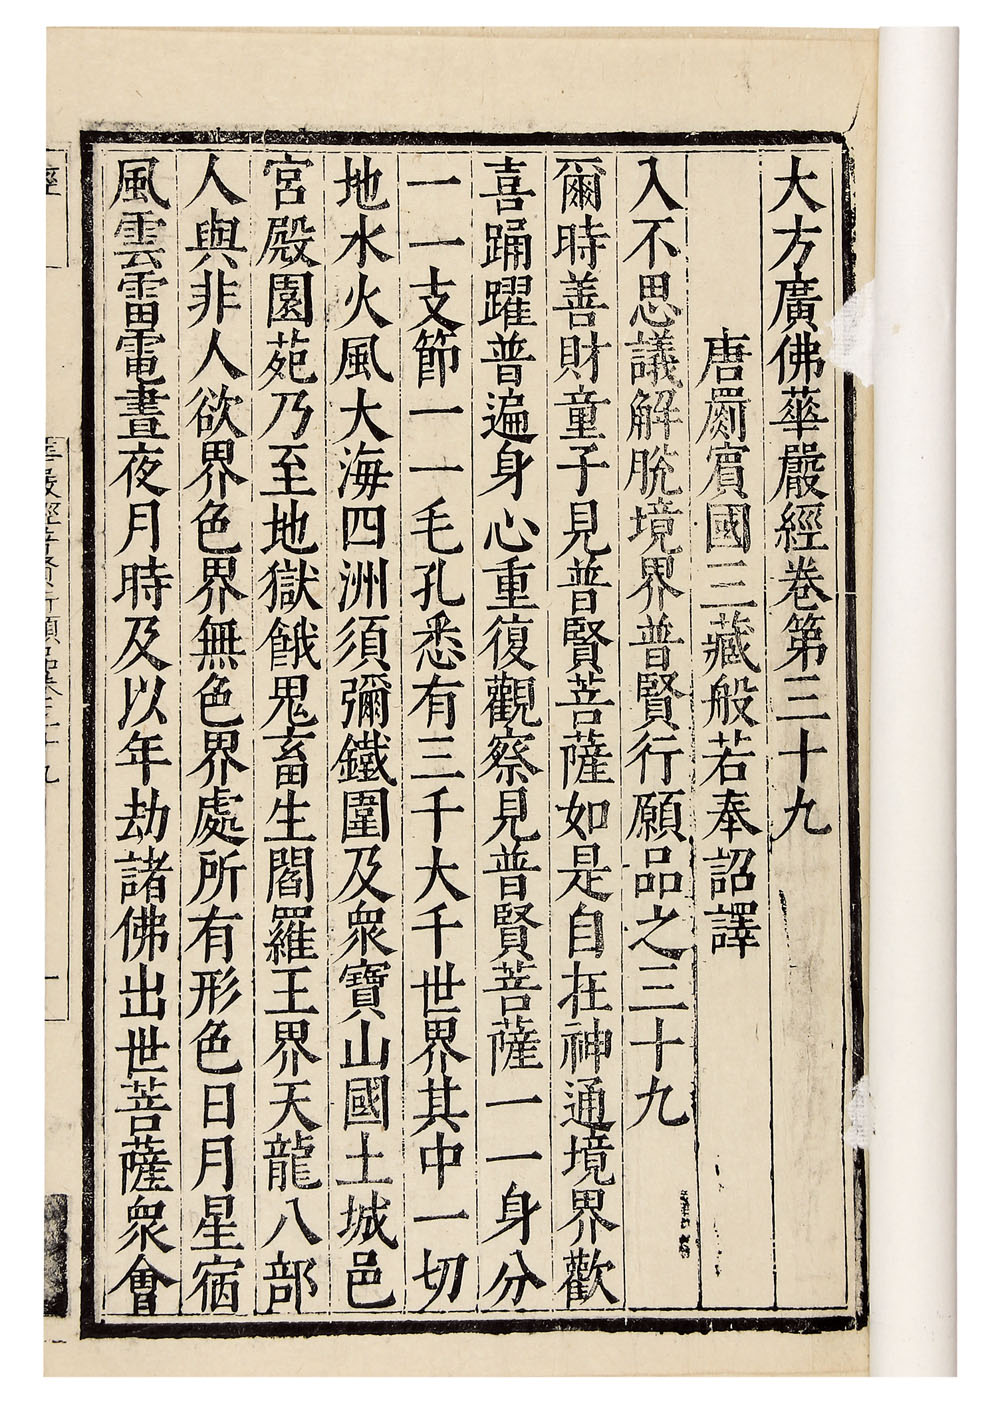 大方廣佛華嚴經卷第三十九
唐罽賓國三藏般若奉詔譯
入不思議解脫境界普賢行願品之三十九
爾時善財童子見普賢菩薩如是自在神通境界歡
喜踊躍普遍身心重復觀察見普賢菩薩一一身分
一一支節一一毛孔悉有三千大千世界其中一切
地水火風大海四洲須彌鐵圍及衆寶山國土城邑
宮殿園苑乃至地獄餓鬼畜生閻羅王界天龍八部
人與非人欲界色界無色界處所有形色日月星宿
風雲雷電晝夜月時及以年劫諸佛出世菩薩衆會